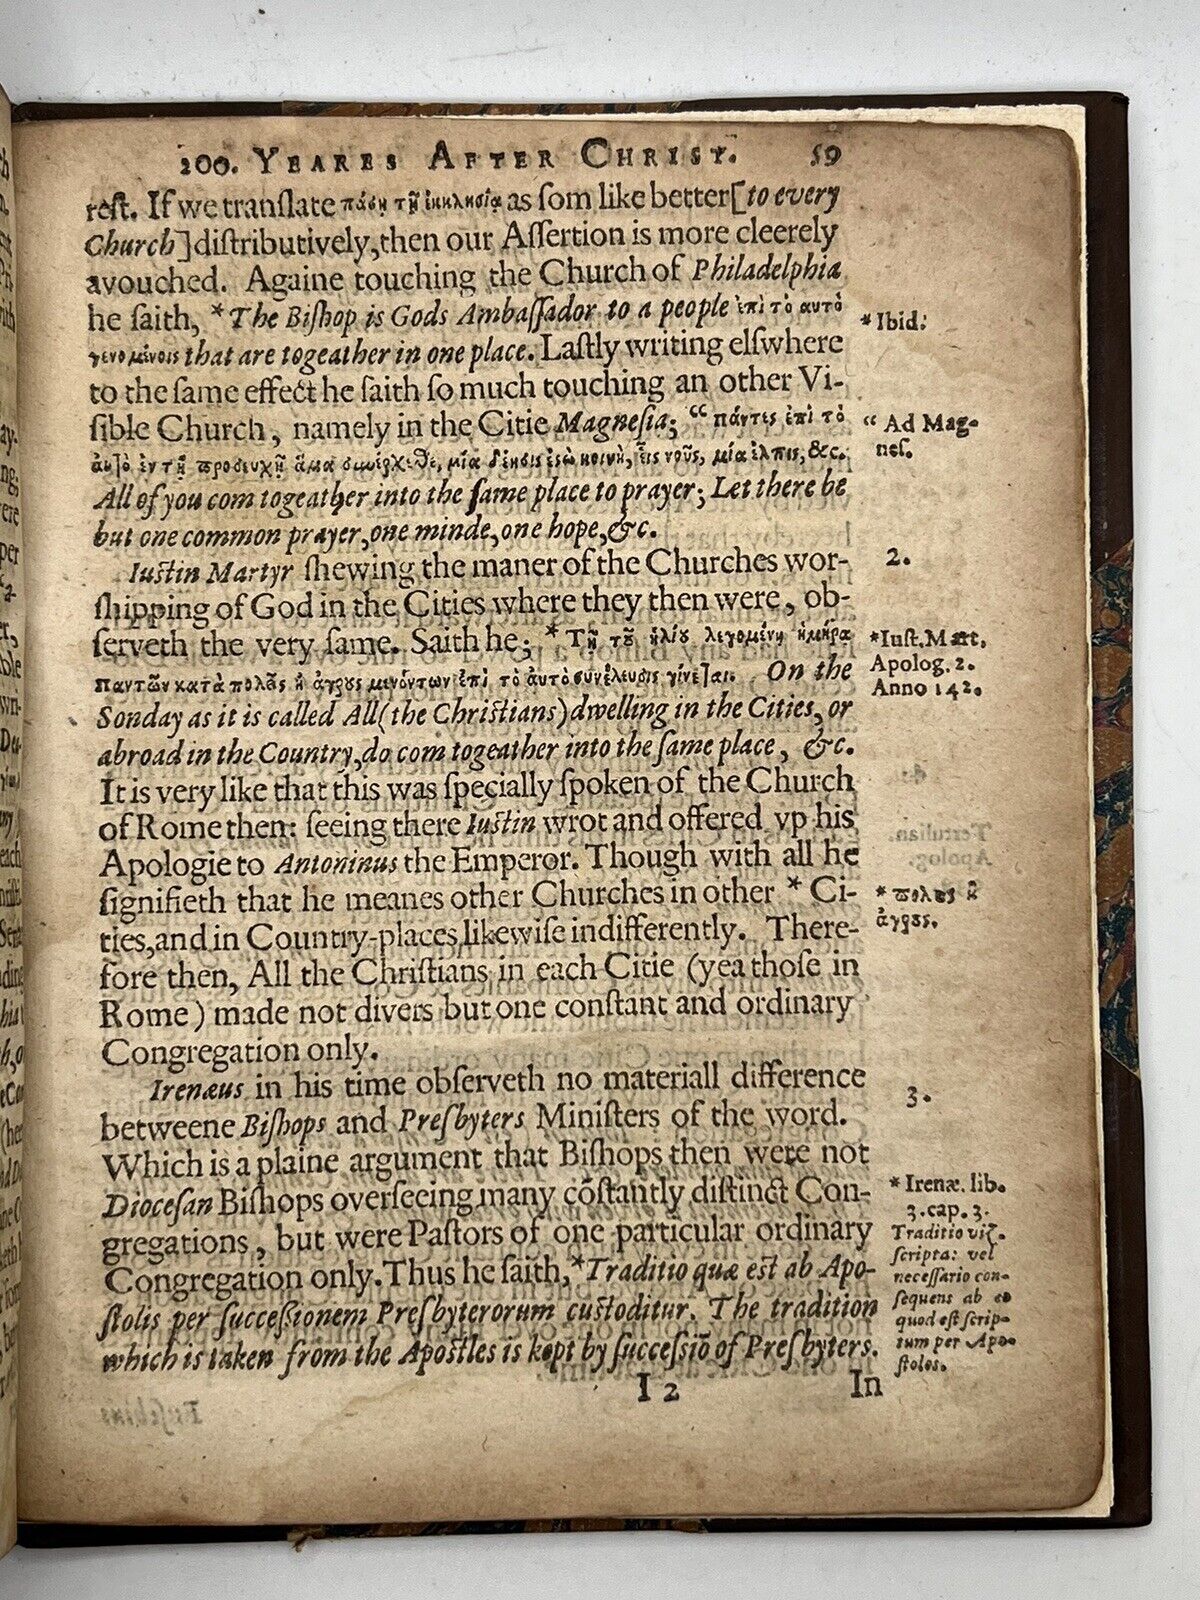 200. YEARES AFTER CHRIST. 59
reſt. If we tranſlate πάσῃ τῇ ἐκκλησίᾳ as ſom like better[to every
Church]diſtributively,then our Aſſertion is more cleerely
avouched. Againe touching the Church of Philadelphia
he ſaith, *The Biſhop is Gods Ambaſſador to a people ἐπὶ τὸ αυτὸ
γενομένοις that are togeather in one place. Laſtly writing elſwhere
to the ſame effect he ſaith ſo much touching an other Vi-
ſible Church, namely in the Citie Magneſia; “ πάντες ἐπὶ τὸ
ἀυτὸ ἐν τῇ προσευχῇ ἅμα συνέρχεσθε, μία δέησις ἔςω κοινὴ, εἷς νοῦς, μία ἐλπις, &c.
All of you com togeather into the ſame place to prayer; Let there be
but one common prayer,one minde,one hope,&c.
Iuſtin Martyr ſhewing the maner of the Churches wor-
ſhipping of God in the Cities where they then were, ob-
ſerveth the very ſame. Saith he; *Τῇ τοῦ ἡλίου λεγομένῃ ἡμέρᾳ
παντῶν κατὰ πολεις ἢ ἀγρους μενόντων ἐπὶ τὸ ἀυτὸ συνέλευσις γίνεται. On the
Sonday as it is called All(the Chriſtians)dwelling in the Cities, or
abroad in the Country,do com togeather into the ſame place, &c.
It is very like that this was ſpecially ſpoken of the Church
of Rome then: ſeeing there Iuſtin wrot and offered vp his
Apologie to Antoninus the Emperor. Though with all he
ſignifieth that he meanes other Churches in other * Ci-
ties,and in Country-places likewiſe indifferently. There-
fore then, All the Chriſtians in each Citie (yea thoſe in
Rome) made not divers but one conſtant and ordinary
Congregation only.
Irenæus in his time obſerveth no materiall difference
betweene Biſhops and Preſbyters Miniſters of the word.
Which is a plaine argument that Biſhops then were not
Dioceſan Biſhops overſeeing many cōſtantly diſtinct Con-
gregations, but were Paſtors of one particular ordinary
Congregation only. Thus he ſaith,*Traditio quæ eſt ab Apo-
ſtolis per ſucceſſionem Preſbyterorum cuſtoditur. The tradition
which is taken from the Apoſtles is kept by ſucceſſiō of Preſbyters.
I 2 In
*Ibid:
“ Ad Mag-
neſ.
2.
*Iuſt.Mart,
Apolog. 2.
Anno 142.
* πολεις ἢ
ἀγρους.
3.
* Irenæ. lib.
3. cap. 3.
Traditio viz.
ſcripta: vel
neceſſario con-
ſequens ab eo
quod eſt ſcrip-
tum per Apo-
ſtolos.